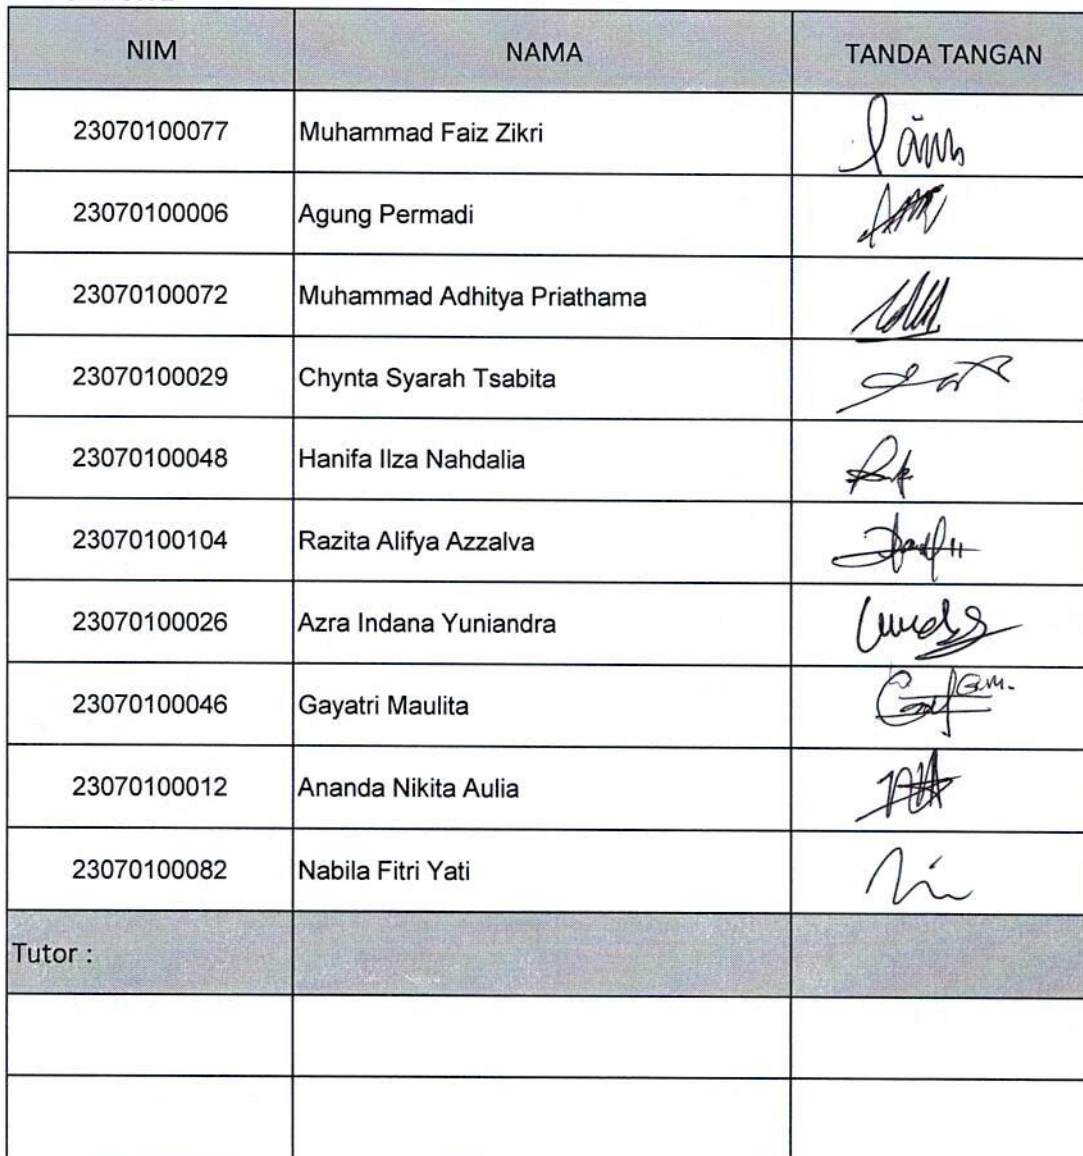 NIM NAMA TANDA TANGAN
23070100077 Muhammad Faiz Zikri
23070100006 Agung Permadi
23070100072 Muhammad Adhitya Priathama
23070100029 Chynta Syarah Tsabita
23070100048 Hanifa Ilza Nahdalia
23070100104 Razita Alifya Azzalva
23070100026 Azra Indana Yuniandra
23070100046 Gayatri Maulita
23070100012 Ananda Nikita Aulia
23070100082 Nabila Fitri Yati
Tutor :